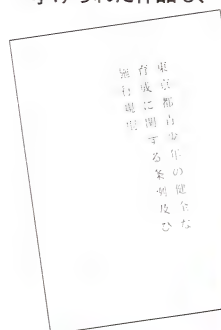 東京都青少年の健全な
育成に関する条例及び
施行規則